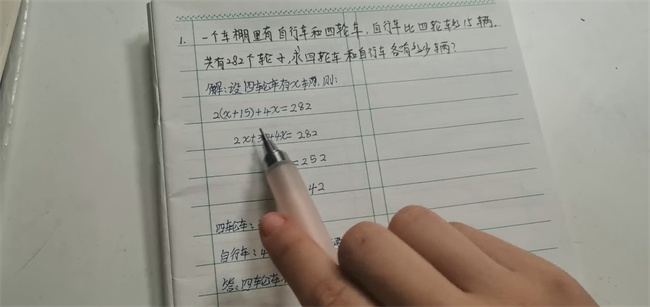 1. 一个车棚里有自行车和四轮车,自行车比四轮车多15辆.
共有282个轮子,求四轮车和自行车各有多少辆?
解:设四轮车有x辆,则:
2(x+15)+4x=282
2x+3+4x=282
=252
42
四轮车:
自行车:4
答:四轮车